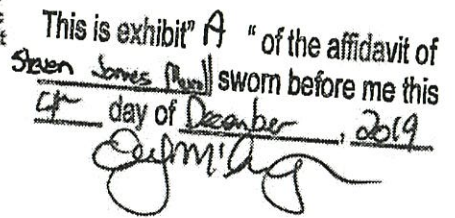 This is exhibit" A " of the affidavit of
Steven James sworn before me this
day of December, 2019